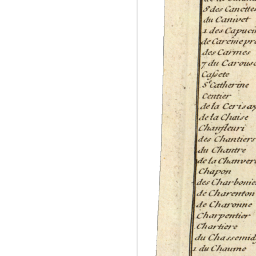 8 des Canettes
du Canivet
2 des Capuci
de Careme pre
des Carmes
7 du Carous
Cassete
Ste Catherine
Centier
de la Cerisay
de la Chaise
Chanfleuri
des Chantiers
du Chantre
de la Chanver
Chapon
des Charbonie
de Charenton
de Charonne
Charpentier
Chartiere
du Chassemidy
2 du Chaume